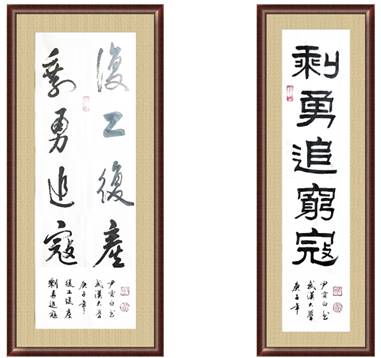 復工復產
剩勇追寇
尹
武漢大學
庚子年
復工復產
剩勇追寇
剩勇追窮寇
尹
武漢大學
庚子年